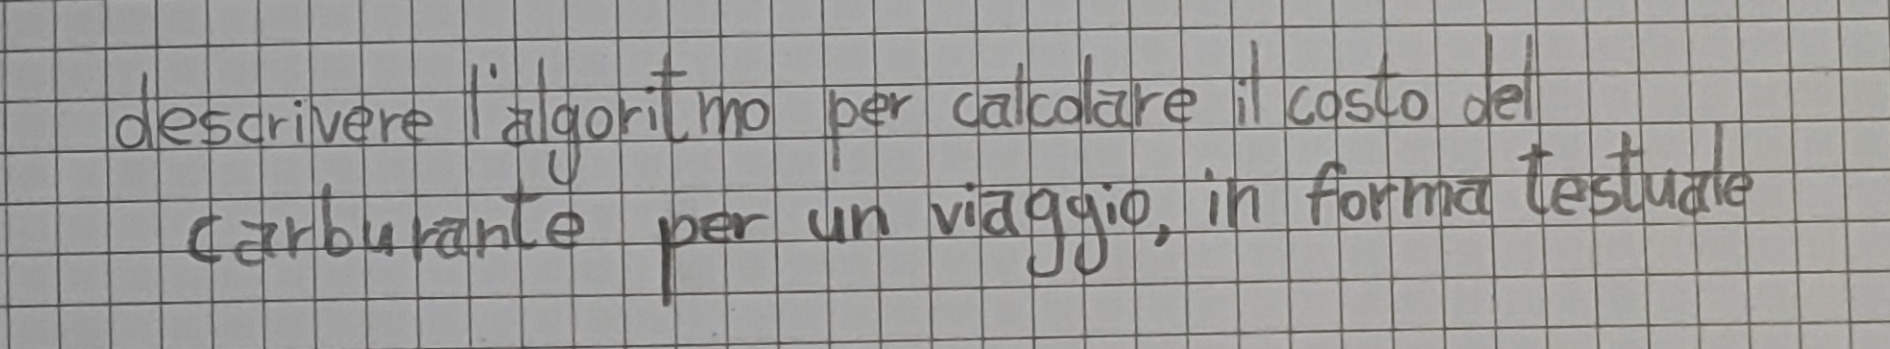 descrivere l'algoritmo per calcolare il costo del
carburante per un viaggio, in forma testuale